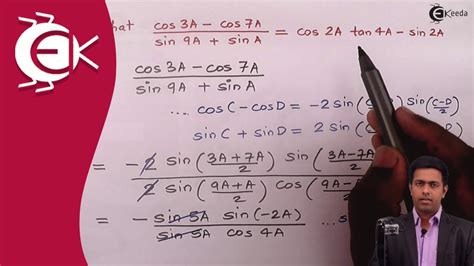 hat cos3A – cos7A / sin 9A + sin A = cos 2A tan 4A – sin 2A
EKeeda
EK
cos3A – cos7A / sin 9A + sin A
.... cos C – cos D = –2 sin( ) sin(C-D/2)
sin C + sin D = 2 sin (
= – 2 sin(3A+7A/2) sin(3A-7A/2) / 2 sin(9A+A/2) cos(9A-A/2)
= – sin 5A sin(-2A) / sin 5A cos 4A ...